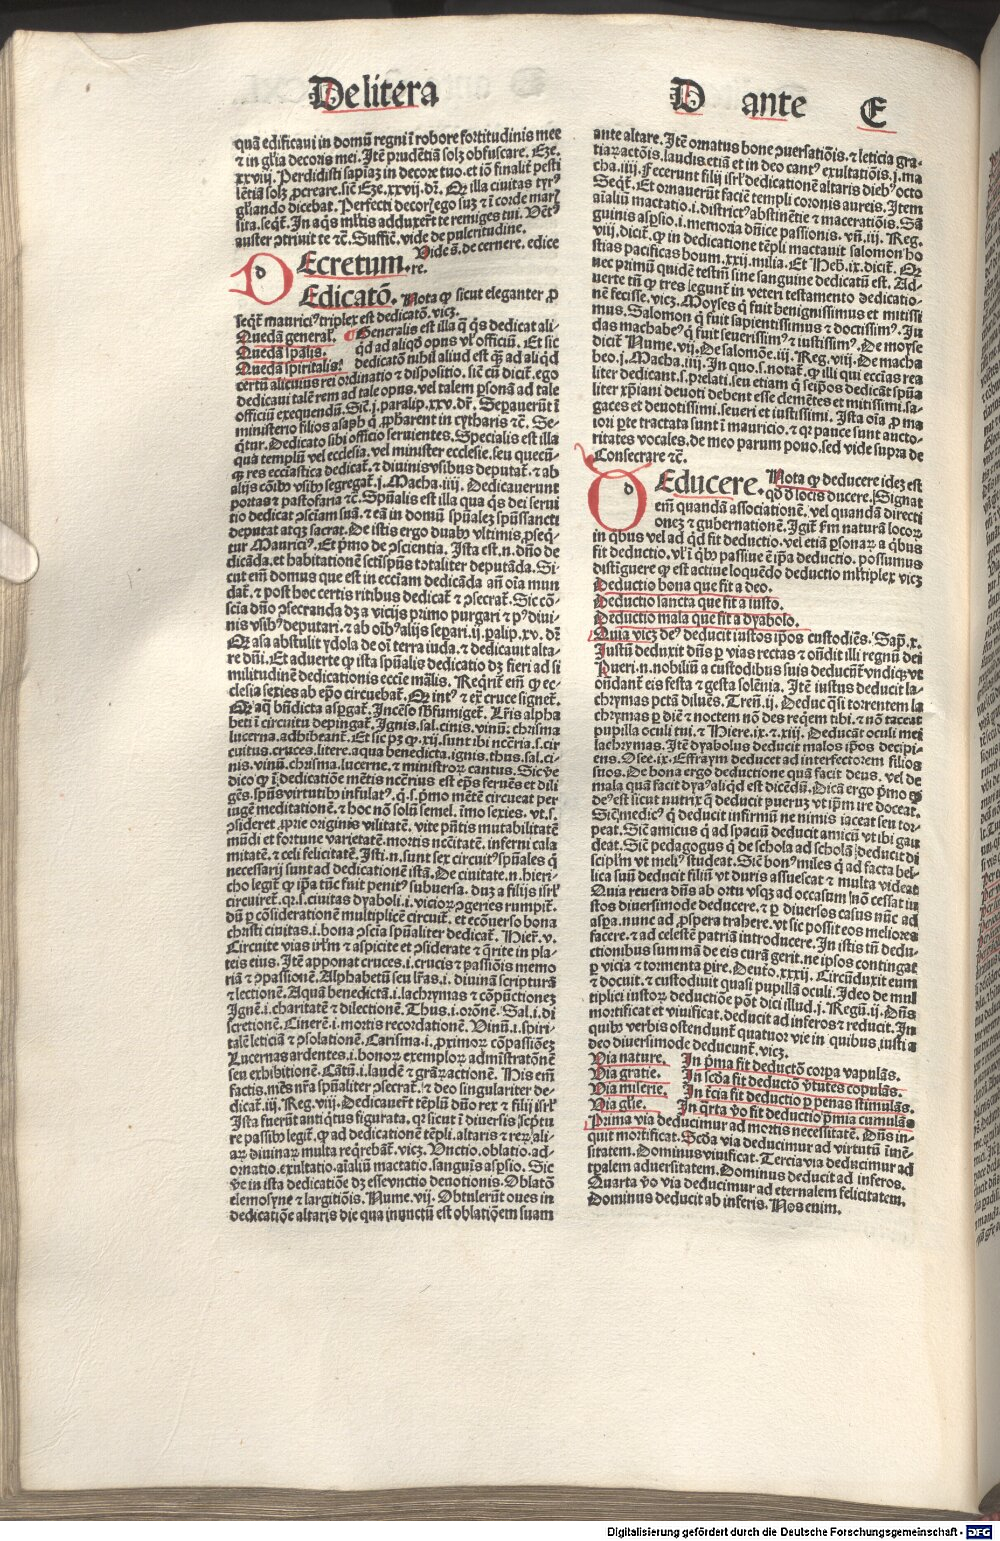 De litera
D ante E
quā edificaui in domū regni ī robore fortitudinis mee
⁊ in gl̄ia decoris mei. Itē prudētiā solꝫ obfuscare. Eze.
xxviij. Perdidisti sapiaꝫ in decore tuo. et iō finalit᷑ pesti
lētiā solꝫ ꝓcreare. sic̄ Eze. xxvij. dr̄. Qꝛ illa ciuitas tyrꝰ
gl̄iando dicebat. Perfecti decorꝫ ego suꝫ ⁊ ī corde marꝫ
sita. seqt᷑. In aqs ml̄tis adduxer̄t te remiges tui. Vētꝰ
auster ꝯtriuit te ⁊c̄. Suffic̄. vide de pulcritudine.
Decretum. Vide s̄. de cernere. edice
re.
Dedicatō. Nota ꝙ sicut eleganter ꝓ
seqt᷑ mauriciꝰ triplex est dedicatō. vicꝫ.
Quedā general᷑. Generalis est illa q̄ qs dedicat ali-
Quedā spālis. qd ad aliqd̄ opus vl̓ officiū. Et sic
Quedā spiritalis. dedicatō nihil aliud est qꝫ ad aliqd
certū alicuius rei ordinatio ⁊ dispositio. sic̄ cū dicit᷑. ego
dedicaui talē rem ad tale opus. vel talem ꝑsonā ad tale
officiū exequendū. Sic̄. j. paralip. xxv. dr̄. Separauer̄t ī
ministerio filios asaph q̄ ꝓphēarent in cytharis ⁊c̄. Se-
q̄tur. Dedicato sibi officio seruientes. Specialis est illa
qua templū vel ecclesia. vel minister ecclesie. seu quecū-
qꝫ res eccl̄astica dedicat᷑. ⁊ diuinis vsibus deputat᷑. ⁊ ab
alijs cōibꝰ vsibꝰ segregat᷑. j. Macha. iiij. Dedicauerunt
portas ⁊ pastofaria ⁊c̄. Spūalis est illa qua qs dei serui
tio dedicat ꝯsciam suā. ⁊ eā in domū spūalez spūssancti
deputat atqꝫ sacrat. De istis ergo duabꝰ vltimis ꝓseq-
tur Mauriciꝰ. Et pͥmo de ꝯscientia. Ista est. n. dn̄o de
dicāda. et habitationē sctīspūs totaliter deputāda. Si
cut em̄ domus que est in ecciam dedicāda an̄ oīa mun
dat᷑. ⁊ post hoc certis ritibus dedicat᷑ ⁊ ꝯsecrat᷑. Sic cō-
scīa dn̄o ꝯsecranda dꝫ a vicijs primo purgari ⁊ pꝰ diui-
nis vsibꝰ deputari. ⁊ ab oībꝰ alijs separi. ij. palip. xv. dr̄
Qꝛ asa abstulit ydola de oī terra iuda. ⁊ dedicauit alta-
re dn̄i. Et aduerte ꝙ ista spūalis dedicatio dꝫ fieri ad si
militudinē dedicationis eccie mālis. Reqrit᷑ em̄ ꝙ ec-
clesia sexies ab epo circuebat᷑. Qꝛ intꝰ ⁊ ext᷑ cruce signet᷑.
Qꝛ aq̄ bn̄dicta aspgat᷑. Incēso sbfumiget᷑. Lr̄is alpha
beti ī circuitu depingat᷑. Ignis. sal. cinis. vinū. chrisma
lucerna. adhibeant᷑. Et sic pꝫ ꝙ. xij. sunt ibi nccria. s. cir
cuitus. cruces. litere. aqua benedicta. ignis. thus. sal. ci-
nis. vinū. chrisma. lucerne. ⁊ ministror̄ cantus. Sic v̄e
dico ꝙ ī dedicatiōe mētis nccrius est eps feruēs et dili
gēs. spūs virtutibꝰ infulatꝰ. q. s. pͥmo mētē circueat per
iugē meditationē. ⁊ hoc nō solū semel. īmo sexies. vt. s.
ꝯsideret ꝓprie originis vilitatē. vite pn̄tis mutabilitatē
mūdi et fortune varietatē. mortis nccitatē. inferni cala
mitatē. ⁊ celi felicitatē. Isti. n. sunt sex circuitꝰ spūales q̄
necessarij sunt ad dedicationē istā. De ciuitate. n. hieri-
cho legit᷑ ꝙ ip̄a tūc fuit penitꝰ subuersa. duꝫ a filijs isrl̓
circuiret᷑. qꝛ. s. ciuitas dyaboli. i. viciorꝫ ꝯgeries rumpit᷑.
dū ꝑ cōsiderationē multiplicē circuit᷑. et ecōuerso bona
christi ciuitas. i. bona ꝯscia spūaliter dedicat᷑. Hier̄. v.
Circuite vias irl̓m ⁊ aspicite et ꝯsiderate ⁊ q̄rite in pla-
teis eius. Itē apponat cruces. i. crucis ⁊ passiōis memo
riā ⁊ ꝯpassionē. Alphabetū seu lr̄as. i. diuinā scripturā
⁊ lectionē. Aquā benedictā. i. lachrymas ⁊ cōpūctionez
Ignē. i. charitatē ⁊ dilectionē. Thus. i. orōnē. Sal. i. di
scretionē. Cinerē. i. mortis recordationē. Vinū. i. spiri-
talē leticiā ⁊ ꝯsolationē. Carisma. i. ꝓximor̄ cōpassiōeꝫ
Lucernas ardentes. i. bonor̄ exemplor̄ admīstratōnē
seu exhibitionē. Cātū. i. laudē ⁊ grar̄actionē. His em̄
factis. mēs nr̄a spūaliter ꝯsecrat᷑. ⁊ deo singulariter de-
dicat᷑. iij. Reg. viij. Dedicauer̄t tēplū dn̄o rex ⁊ filij isrl̓
Ista fuerūt antiqͥtus figurata. qꝛ sicut ī diuersis scrip̄tu
re passibꝰ legit᷑. ꝙ ad dedicationē tēpli. altaris ⁊ rer̄ ali-
ar̄ diuinar̄ multa reqrebāt᷑. vicꝫ. Vnctio. oblatio. ad-
ornatio. exultatio. aīaliū mactatio. sanguīs aspsio. Sic
v̄e in ista dedicatiōe dꝫ esse vnctio deuotionis. Oblatō
elemosyne ⁊ largitiōis. Nume. vij. Obtulerūt oues in
dedicatiōe altaris die qua inunctū est oblatiōem suam
ante altare. Itē ornatus bone ꝯuersatiōis. ⁊ leticia gra-
tiarꝫactōis. laudis. etiā et in deo cantꝰ exultatiōis. j. ma
cha. iiij. Fecerunt filij isrl̓ dedicationē altaris diebꝰ octo
Seqt᷑. Et ornauerūt faciē templi coronis aureis. Item
aīaliū mactatio. i. districtꝰ abstinētie ⁊ maceratiōis. Sā
guinis aspsio. i. memoria dn̄ice passionis. vn̄. iij. Reg.
viij. dicit᷑. ꝙ in dedicatione tēpli mactauit salomon ho
stias pacificas boum. xxij. milia. Et Heb. ix. dicit᷑. Qꝛ
nec primū quidē testm̄ sine sanguine dedicatū est. Ad-
uerte tn̄ ꝙ tres legunt᷑ in veteri testamento dedicatio-
nē fecisse. vicꝫ. Moyses q̄ fuit benignissimus et mitissi
mus. Salomon q̄ fuit sapientissimus ⁊ doctissimꝰ. Ju
das machabeꝰ q̄ fuit seuerissimꝰ ⁊ iustissimꝰ. De moyse
dicit᷑ Nume. vij. De salomōe. iij. Reg. viij. De macha
beo. j. Macha. iiij. In quo. s. notat᷑. ꝙ illi qui ecclīas rea
liter dedicant. s. prelati. seu etiam q̄ seipōs dedicāt spūa
liter xp̄iani deuoti debent esse clemētes et mitissimi. sa-
gaces et deuotissimi. seueri et iustissimi. Ista oīa ꝓ ma
iori ꝑte tractata sunt ī mauricio. ⁊ qꝛ pauce sunt aucto-
ritates vocales. de meo parum pono. sed vide supra de
Consecrare ⁊c̄.
Deducere. Nota ꝙ deducere ideꝫ est
qd̄ d̄ locis ducere. Signat
em̄ quandā associationē. vel quandā directi
onez ⁊ gubernationem. Igit᷑ fm̄ naturā locor̄
in qͥbus vel ad qd fit deductio. vel etiā ꝑsonar̄ a qbus
fit deductio. vl̓ ī qbꝰ passiue ē ip̄a deductio. possumus
distiguere ꝙ est actiue loquēdo deductio ml̓tiplex vicꝫ
Deductio bona que fit a deo.
Deductio sancta que fit a iusto.
Deductio mala que fit a dyabolo.
Quia vicꝫ deꝰ deducit iustos ip̄os custodiēs. Sap. x.
Iustū deduxit dn̄s ꝑ vias rectas ⁊ on̄dit illi regnū dei
Pueri. n. nobiliū a custodibus suis deducūt᷑ vndiqꝫ vt
on̄dant᷑ eis festa ⁊ gesta solēnia. Itē iustus deducit la-
chrymas pctā diluēs. Tren̄. ij. Deduc q̄si torrentem la
chrymas ꝑ diē ⁊ noctem nō des reqem tibi. ⁊ nō taceat
pupilla oculi tui. ⁊ Hiere. ix. ⁊. xiij. Deducāt oculi mei
lachrymas. Itē dyabolus deducit malos ip̄os decipi-
ens. Osee. ix. Effraym deducet ad interfectorem filios
suos. De bona ergo deductione quā facit deus. vel de
mala quā facit dyaꝰ aliqd est dicēdū. Dicā ergo pͥmo ꝙ
deꝰ est sicut nutrix q̄ deducit pueruꝫ vt ip̄m ire doceat.
Sic̄ medicꝰ q̄ deducit infirmū ne nimis iaceat seu tor-
peat. Sic̄ amicus q̄ ad spaciū deducit amicū vt ibi gau
deat. Sic̄ pedagogus q̄ de schola ad scholā deducit di
scipl̄m vt meliꝰ studeat. Sic̄ bonꝰ miles q̄ ad facta bel-
lica suū deducit filiū vt duris assuescat ⁊ multa videat
Quia reuera dn̄s ab ortu vsqꝫ ad occasum nō cessat iu
stos diuersimode deducere. ⁊ ꝑ diuersos casus nūc ad
aspa. nunc ad ꝓspera trahere. vt sic possit eos meliores
facere. ⁊ ad celestē patriā introducere. In istis tn̄ dedu-
ctionibus summā de eis curā gerit. ne ipsos contingat
ꝑ vicia ⁊ tormenta ꝑire. Deuto. xxxij. Circūduxit eum
⁊ docuit. ⁊ custodiuit quasi pupillā oculi. Ideo de mul
tiplici iustor̄ deductiōe pōt dici illud. j. Regū. ij. Dn̄s
mortificat et viuificat. deducit ad inferos ⁊ reducit. In
quibꝰ verbis ostendunt᷑ quatuor vie in quibus iusti a
deo diuersimode deducunt᷑. vicꝫ.
Via nature. In pͥma fit deductō corpa vapulās.
Via gratie. In scd̄a fit deductō v̓tutes copulās.
Via miserie. In t̓cia fit deductio ꝑ penas stimulās.
Via gl̄ie. In q̄rta v̓o fit deductio pͥmia cumulās
Prima via deducimur ad mortis necessitatē. Dn̄s in-
quit mortificat. Scd̄a via deducimur ad virtutū īmē-
sitatem. Dominus viuificat. Tercia via deducimur ad
tp̄alem aduersitatem. Dominus deducit ad inferos.
Quarta v̓o via deducimur ad eternalem felicitatem.
Dominus deducit ab inferis. Nos enim.
Digitalisierung gefördert durch die Deutsche Forschungsgemeinschaft - DFG